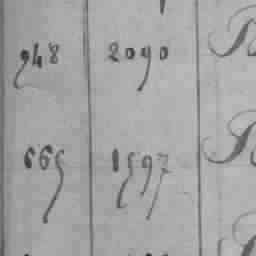 948 2090
665 1597